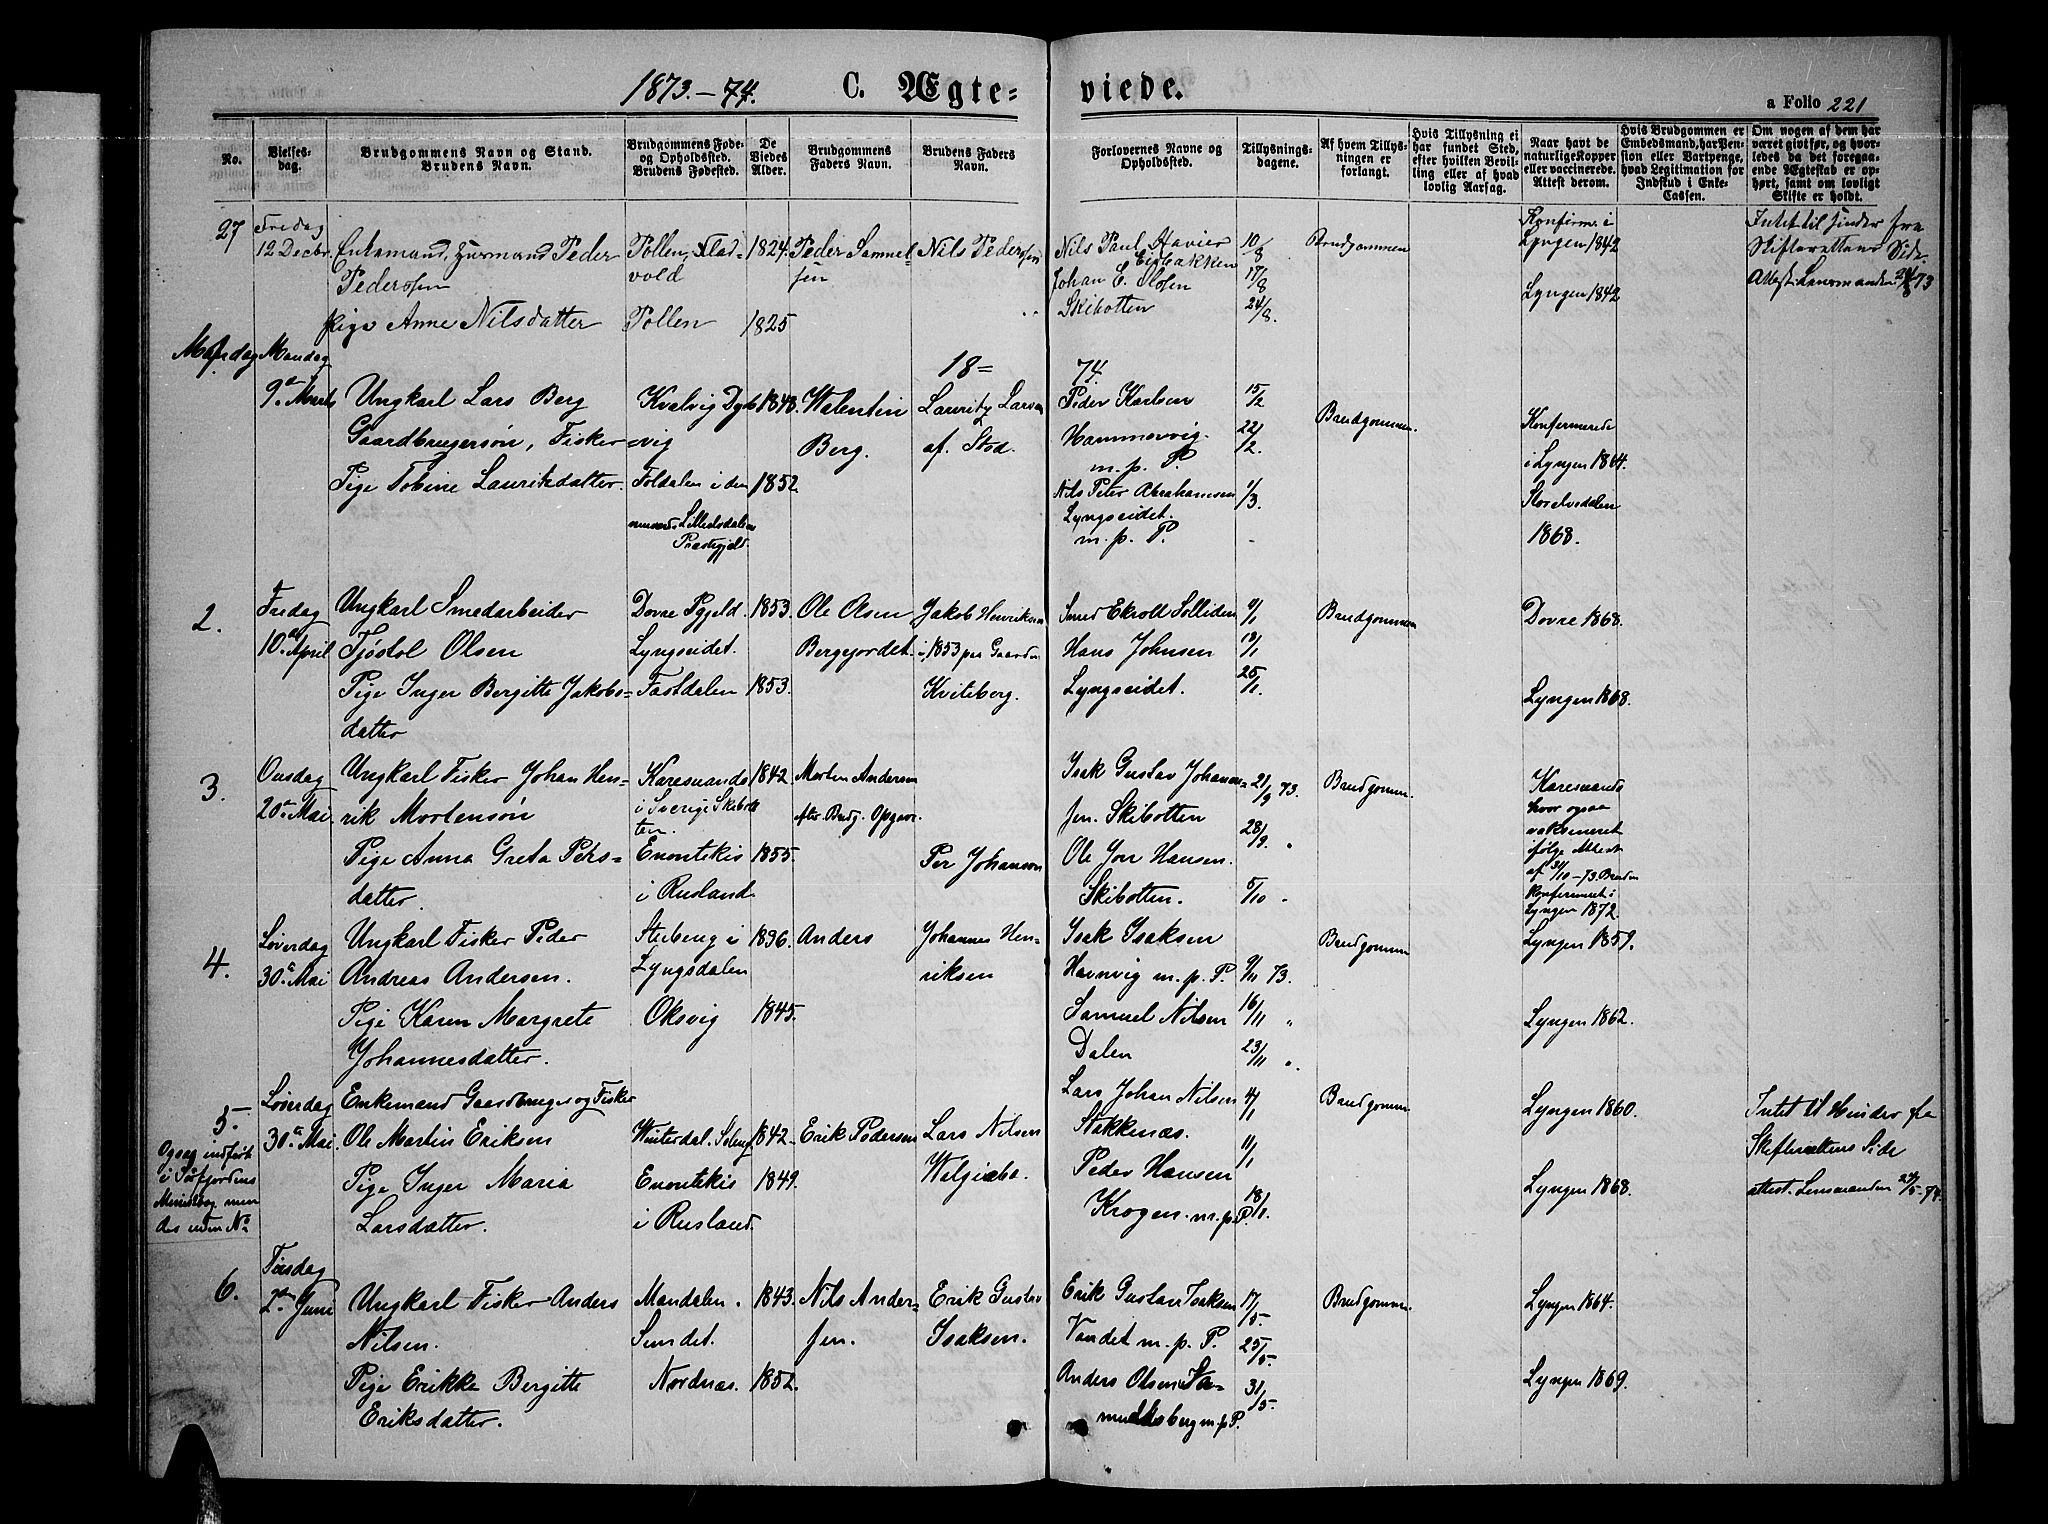 1873.-74. C. Ægteviede. a Folio 221
No.
Vielsesdag.
Brudgommens Navn og Stand.
Brudens Navn.
Brudgommens Føde-
og Opholdssted.
Brudens Fødested.
De
Viedes
Alder.
Brudgommens
Faders Navn.
Brudens Faders
Navn.
Forlovernes Navne og
Opholdssted.
Tillysnings-
dagene.
Af hvem Tillys-
ningen er
forlangt.
Hvis Tillysning ei
har fundet Sted,
efter hvilken Bevil-
ling eller af hvad
lovlig Aarsag.
Naar havt de
naturlige Kopper
eller vaccinerede.
Attest derom.
Hvis Brudgommen er
Embedsmand, har Pen-
sion eller Vartpenge,
hvad Legitimation for
Indskud i Enke-
Cassen.
Om nogen af dem har
været gift før, og hvor-
ledes da det foregaa-
ende Ægteskab er op-
hørt, samt om lovligt
Skifte er holdt.
27
Fredag
12 Decbr.
Enkemand, Peder
Pedersen
Pige Anne Nilsdatter
Pollen,
vold
Pollen
1824.
1825
Peder Samuel-
sen
Nils Pedersen
Nils Paul
Johan E. Olsen
Skibotten
10/8
17/8
24/8.
Brudgommen
Konfirm. i
Lyngen 1842
Lyngen 1842
Intet til Hinder fra
Skifterettens Side
Attest Lensmanden
Mandag
9de Marts
Ungkarl Lars Berg
Gaardbrugersøn, Fisker
Pige Tobine Lauritsdatter.
Kvalvig
vig
Foldalen i den
Præstegjeld.
1848.
1852
Walentin
Berg.
Lauritz Larsen
af. Stod.
18=74.
Peder Karlsen
Hammervig.
m. p. P.
Nils Peter Abrahamsen
Lyngseidet.
m. p. P.
15/2
22/2.
1/3.
Brudgommen.
Konfermerede
i Lyngen 1864.
Storelvedalen
1868.
2.
Fredag
10de April
Ungkarl Smedarbeider
Tjøstol Olsen
Pige Inger Bergitte Jakobs=
datter
Dovre Pgjeld.
Lyngseidet.
Fastdalen
1853.
1853.
Ole Olsen
Bergejordet.
Jakob Henriksen
i 1853 paa Gaarden
Kviteberg.
Smed Solliden
Hans Johnsen
Lyngseidet.
18/1
25/1.
Brudgommen
Dovre 1868.
Lyngen 1868.
3.
Onsdag
20de Mai.
Ungkarl Fisker Johan Hen-
rik Mortensøn
Pige Anna Greta Pers=
datter.
Karesuando
i Sverige Skibot
ten.
Enontekis
i Rusland
1842.
1855.
Morten Andersen
efter Brudg. Opgave.
Per Johansen
Isak Gustav Johannes=
sen. Skibotten
Ole Hansen.
Skibotten.
21/9 73.
28/9. "
5/10 "
Brudgommen.
Karesuando
hvor ogsaa
vaksineret
ifølge Attest
af 31/10-73. Bruden
Konfirmeret i
Lyngen 1872.
4.
Løverdag
30de Mai
Ungkarl Fisker Peder
Andreas Andersen.
Pige Karen Margrete
Johannesdatter.
Lyngsdalen
Oksvig
1836.
1845.
Anders
Johannes Hen=
riksen
Isak Isaksen
Havnvig m. p. P.
Samuel Nilsen
Dalen
9/11 73.
16/11 "
23/11 "
Brudgommen
Lyngen 1859.
Lyngen 1862.
5.
Ogsaa indført
i Sørfjordens
Ministbog men
des uden No
Løverdag
30de Mai.
Enkemand Gaardbruger og Fisker
Ole Martin Eriksen
Pige Inger Maria
Larsdatter.
Winterdal.
Enontekis
i Rusland.
1842.
1849.
Erik Pedersen
Lars Nilsen
Lars Johan Nilsen
Stokkenæs.
Peder Hansen
Krogen. m. p. P.
4/1
11/1
18/1.
Brudgommen
Lyngen 1860.
Lyngen 1868.
Intet til Hinder fra
Skifterettens Side
attest. Lensmanden
6.
Tirsdag
2den Juni
Ungkarl Fisker Anders
Nilsen.
Pige Erikke Bergitte
Eriksdatter.
Mandalen.
Sundet.
Nordnæs.
1843.
1852.
Nils Ander-
sen.
Erik Gustav
Isaksen.
Erik Gustav Isaksen
Vandet m. p. P.
Anders Olsen Sa-
muelsberg m. p. P.
17/5.
25/5.
31/5.
Brudgommen.
Lyngen 1864.
Lyngen 1869.